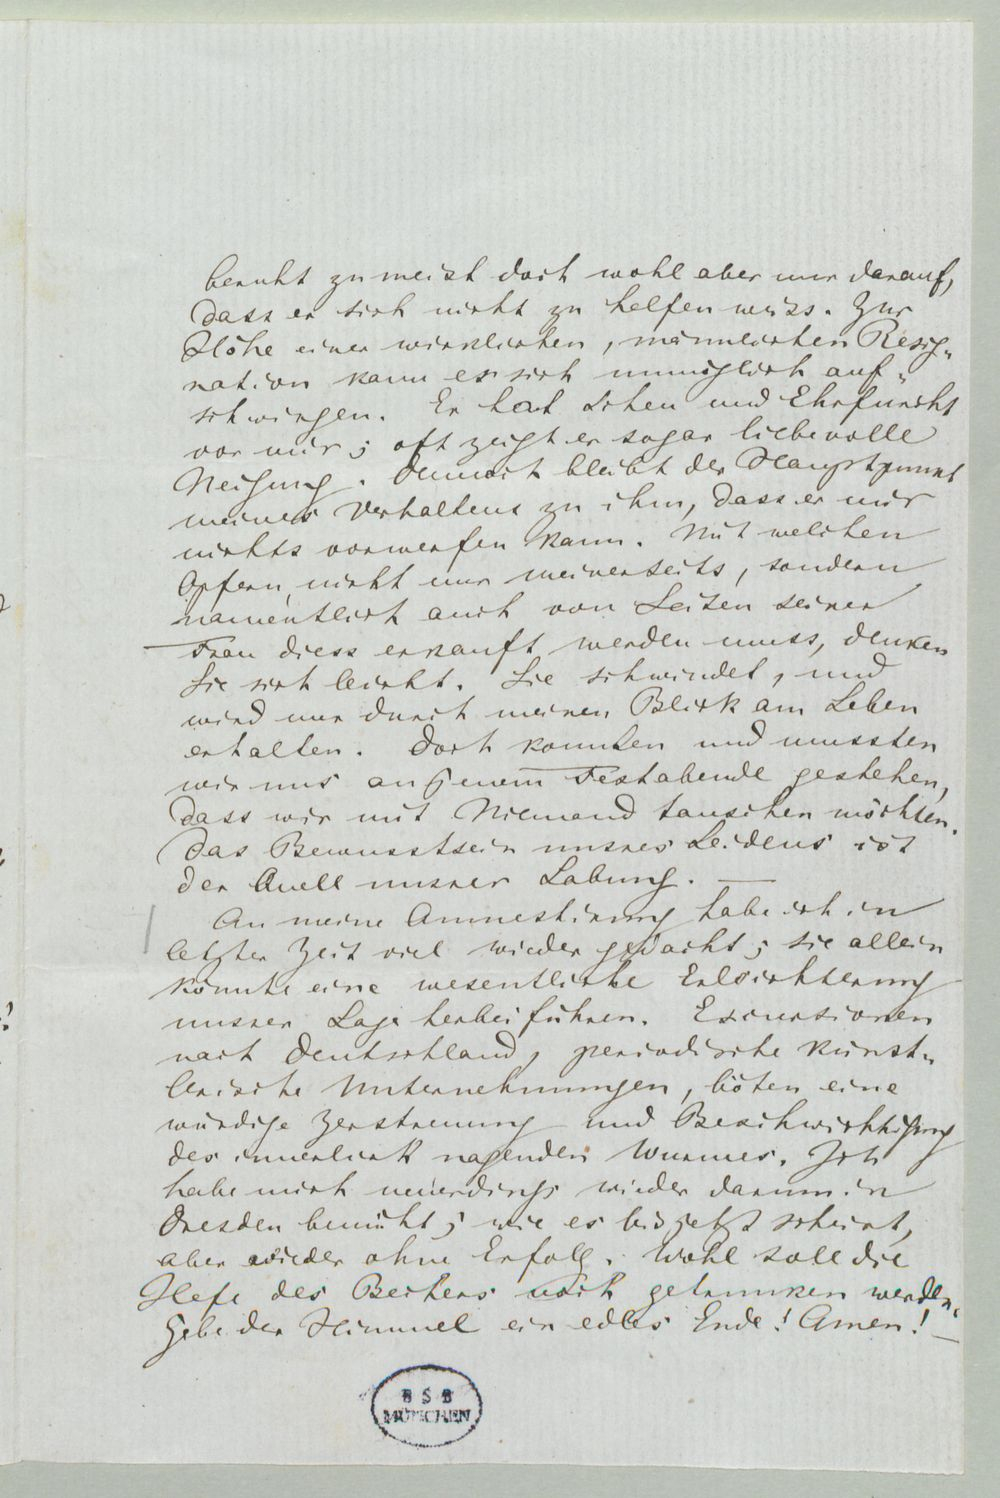 beruht zu meist doch wohl aber nur darauf,
dass er sich nicht zu helfen weiss. Zur
Höhe einer wirklichen, männlichen Resig„
nation kann er sich unmöglich auf„
schwingen. Er hat Scheu und Ehrfurcht
vor mir; oft zeigt er sogar liebevolle
Neigung. Dennoch bleibt der Hauptpunkt
meines Verhaltens zu ihm, dass er mir
nichts vorwerfen kann. Mit welchen
Opfern, nicht nur meinerseits, sondern
namentlich auch von Seiten seiner
Frau diess erkauft werden muss, denken
Sie sich leicht. Sie schwindet, und
wird nur durch meinen Blick am Leben
erhalten. Doch konnten und mussten
wir uns an jenem Festabende gestehen,
dass wir mit Niemand tauschen möchten.
Das Bewusstsein unsres Leidens ist
der Quell unsrer Labung. —
An meine Amnestirung habe ich in
letzter Zeit viel wieder gedacht; sie allein
könnte eine wesentliche Erleichterung
unsrer Lage herbeiführen. Excursionen
nach Deutschland, periodische künst„
lerische Unternehmungen, böten eine
würdige Zerstreuung und Beschwichtigung
des innerlich nagenden Wurmes. Ich
habe mich neuerdings wieder darum in
Dresden bemüht; wie es bis jetzt scheint,
aber wieder ohne Erfolg. Wohl soll die
Hefe des Bechers noch getrunken werden.
Gebe der Himmel ein edles Ende! Amen! —
BSB
MÜNCHEN